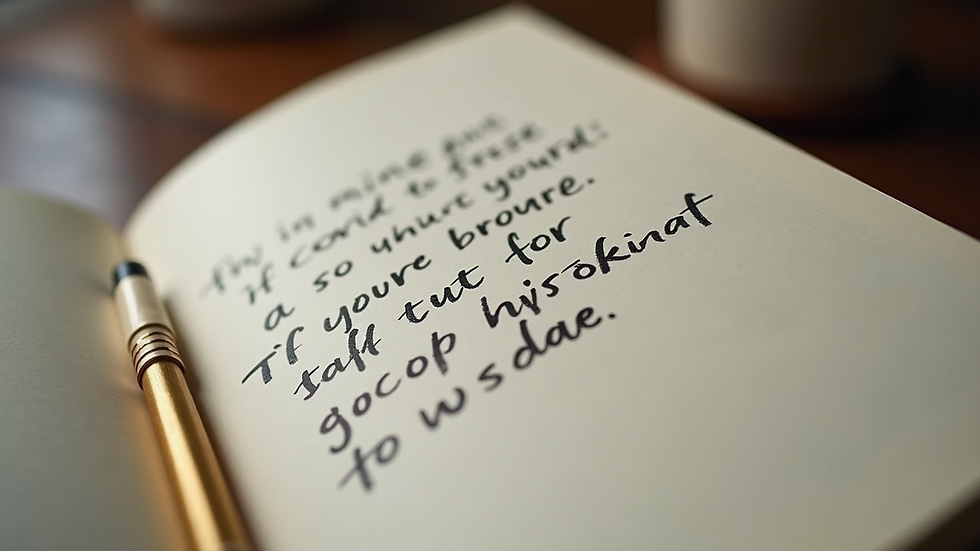 in mine
if cornd to frise
a so uhurt yourd:
Tif youre broure.
taff tut for
gocop hisokinaf
to wsdae.